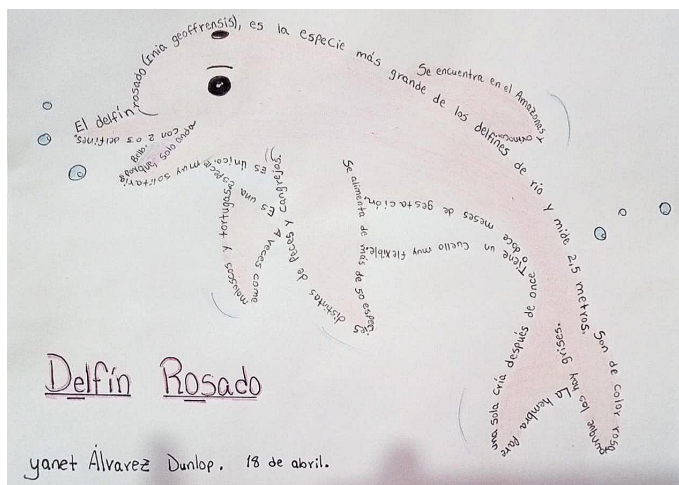 El delfín rosado (Inia geoffrensis), es la especie más grande de los delfines de río y mide 2,5 metros,
Son de color rosa aunque los hay grises.
La hembra pare una sola cría después de once o doce meses de gestación.
Se encuentra en el Amazonas y
Tiene un cuello muy flexible.
Se alimenta de más de 50 especies distintas de peces y cangrejos.
A veces come moluscos y tortugas.
Es una especie muy solitaria
Es único
con 2 o 3 delfines.
Delfín Rosado
yanet Álvarez Dunlop. 18 de abril.